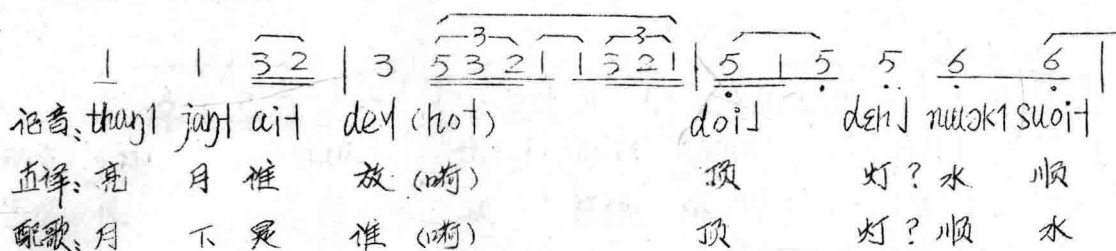 3 3
1 1 3 2 | 3 5 3 2 1 1 3 2 1 | 5 1 5 5 6 6 |
记音:thaŋ˥ jaŋ˧ ai˧ dɛy˧˩ (hot) doi˩ dɛn˩ nɯɔk˥ suoi˧
直译:亮 月 谁 放 (嗬) 顶 灯?水 顺
配歌:月 下 是 谁 (嗬) 顶 灯?顺 水